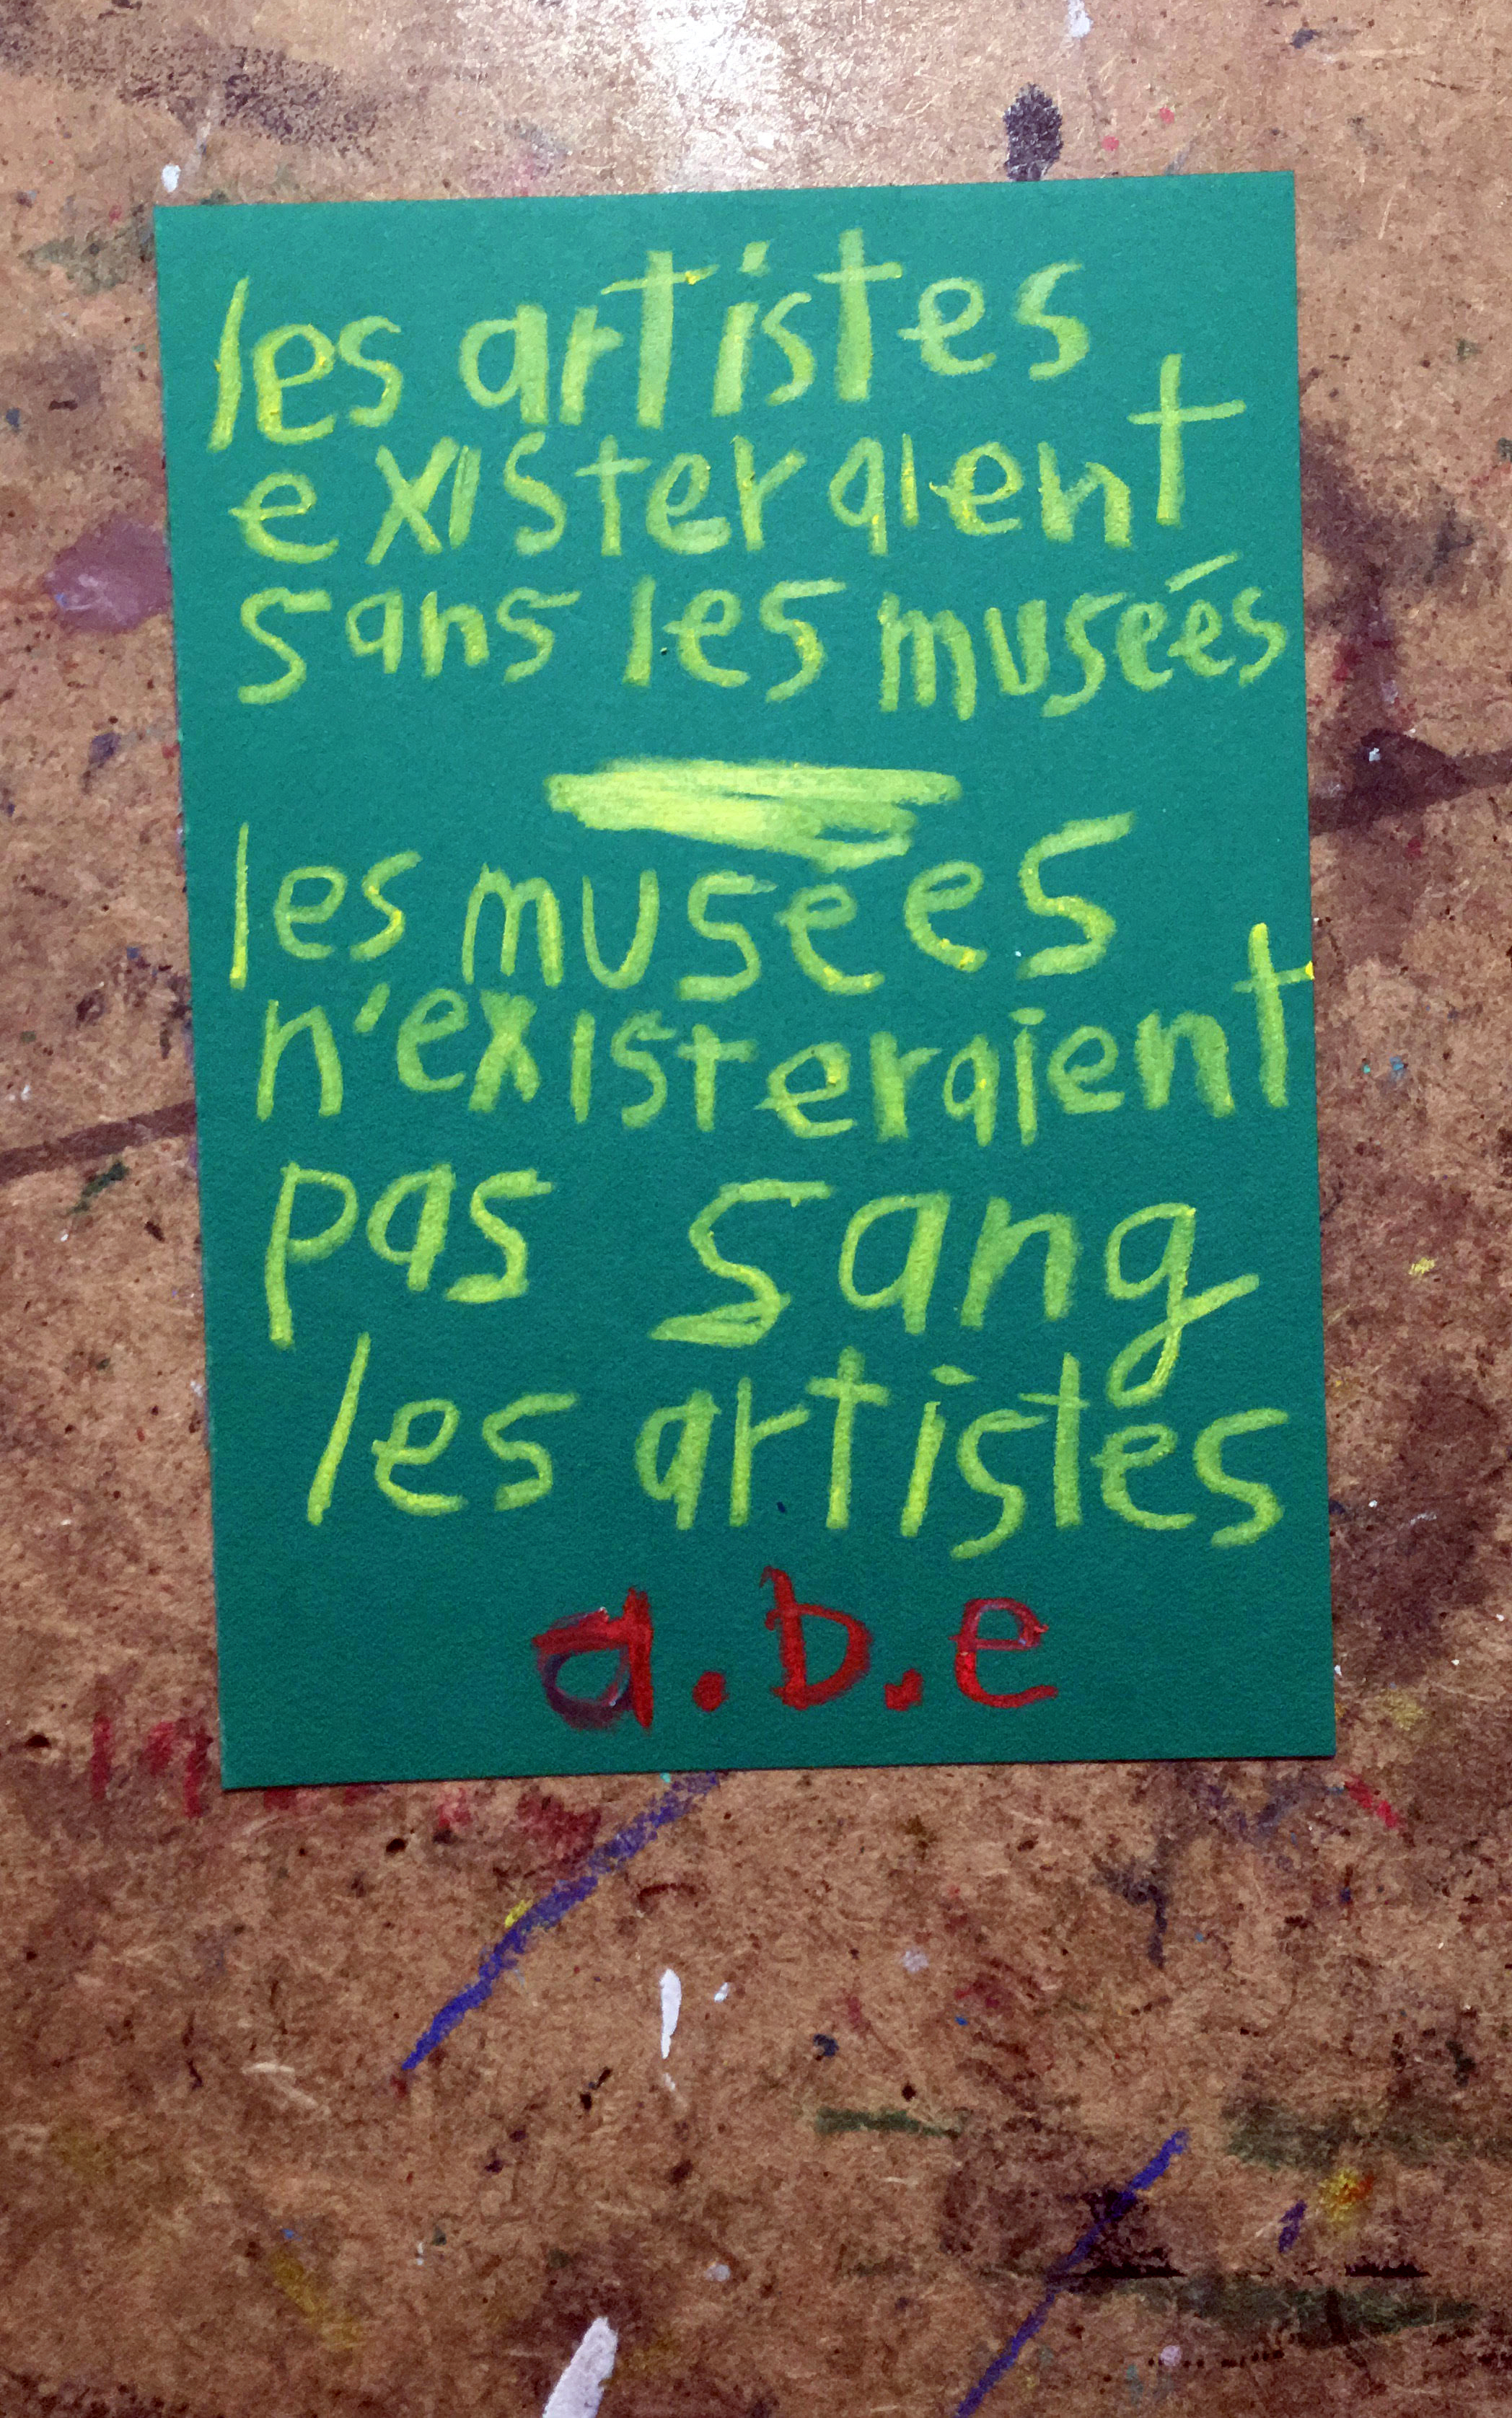 les artistes
existeraient
sans les museés
les musées
n'existeraient
pas sang
les artistes
a.b.e